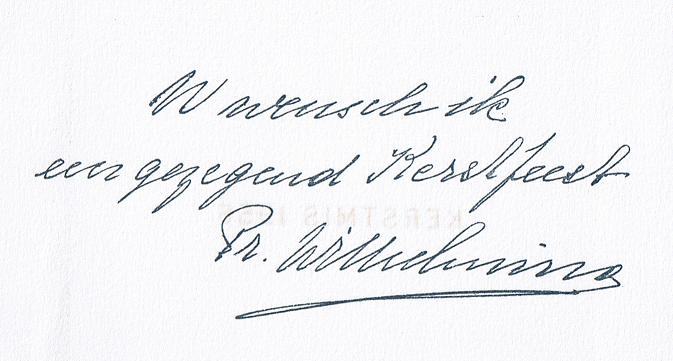 U wensch ik
een gezegend Kerstfeest
KERSTMIS 1955
Pr. Wilhelmina